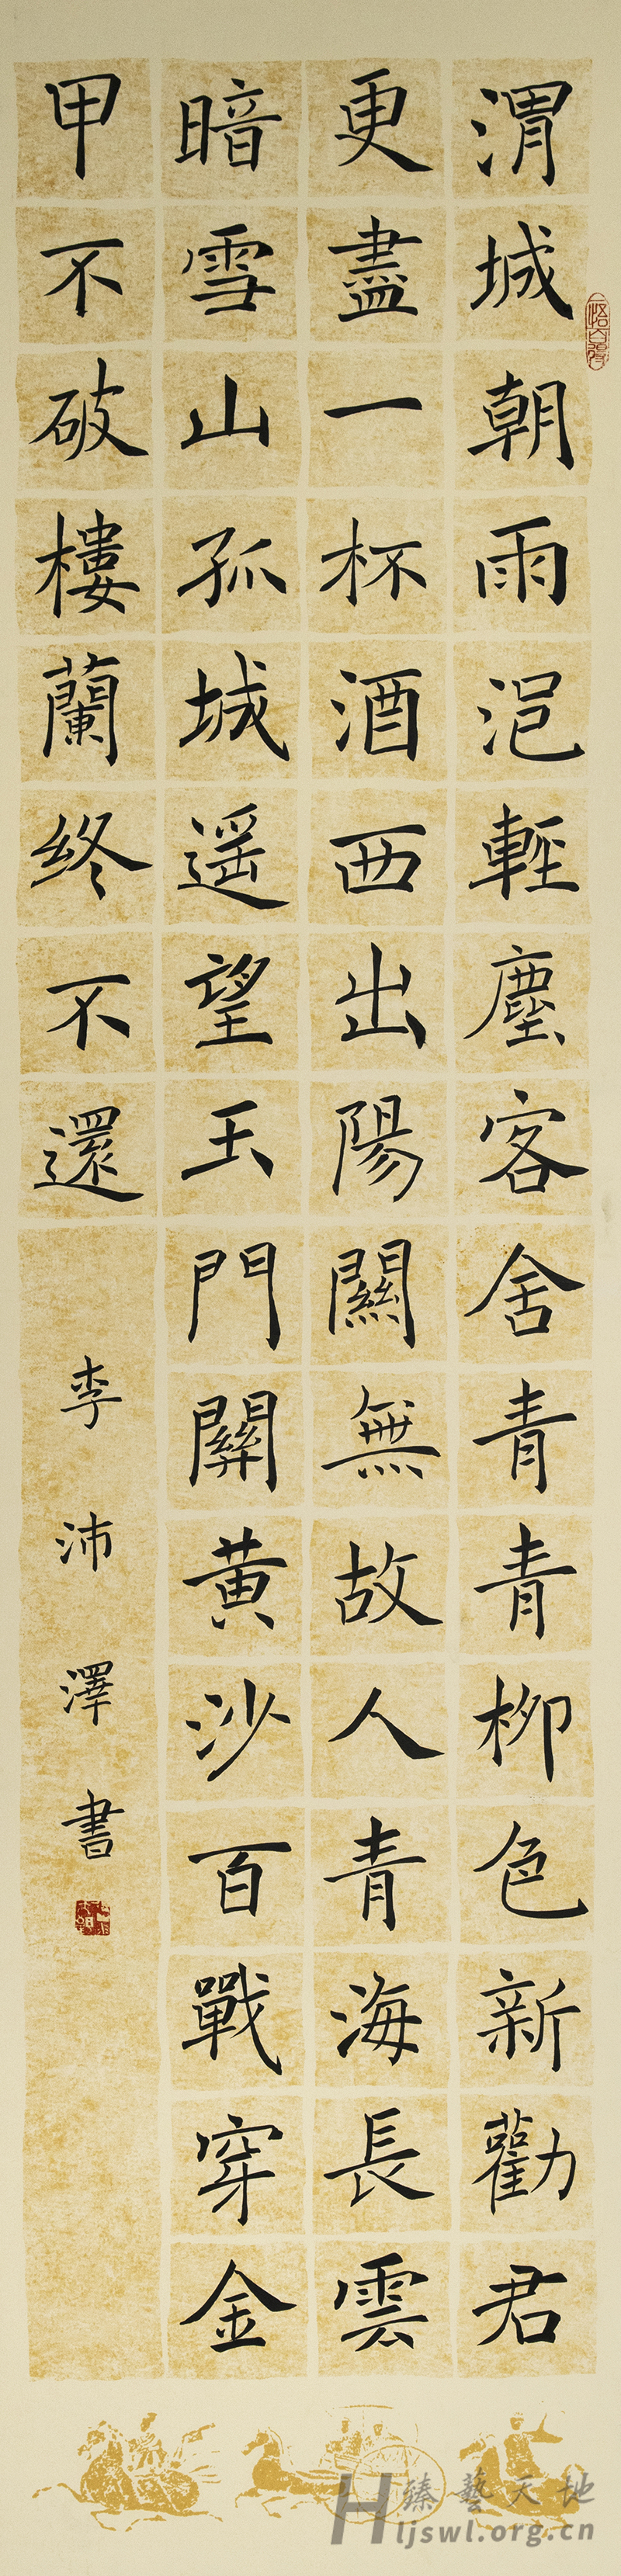 渭城朝雨浥輕塵客舍青青柳色新勸君
更盡一杯酒西出陽關無故人青海長雲
暗雪山孤城遥望玉門關黄沙百戰穿金
甲不破樓蘭終不還
李沛澤書
臻藝天地
Hljswl.org.cn